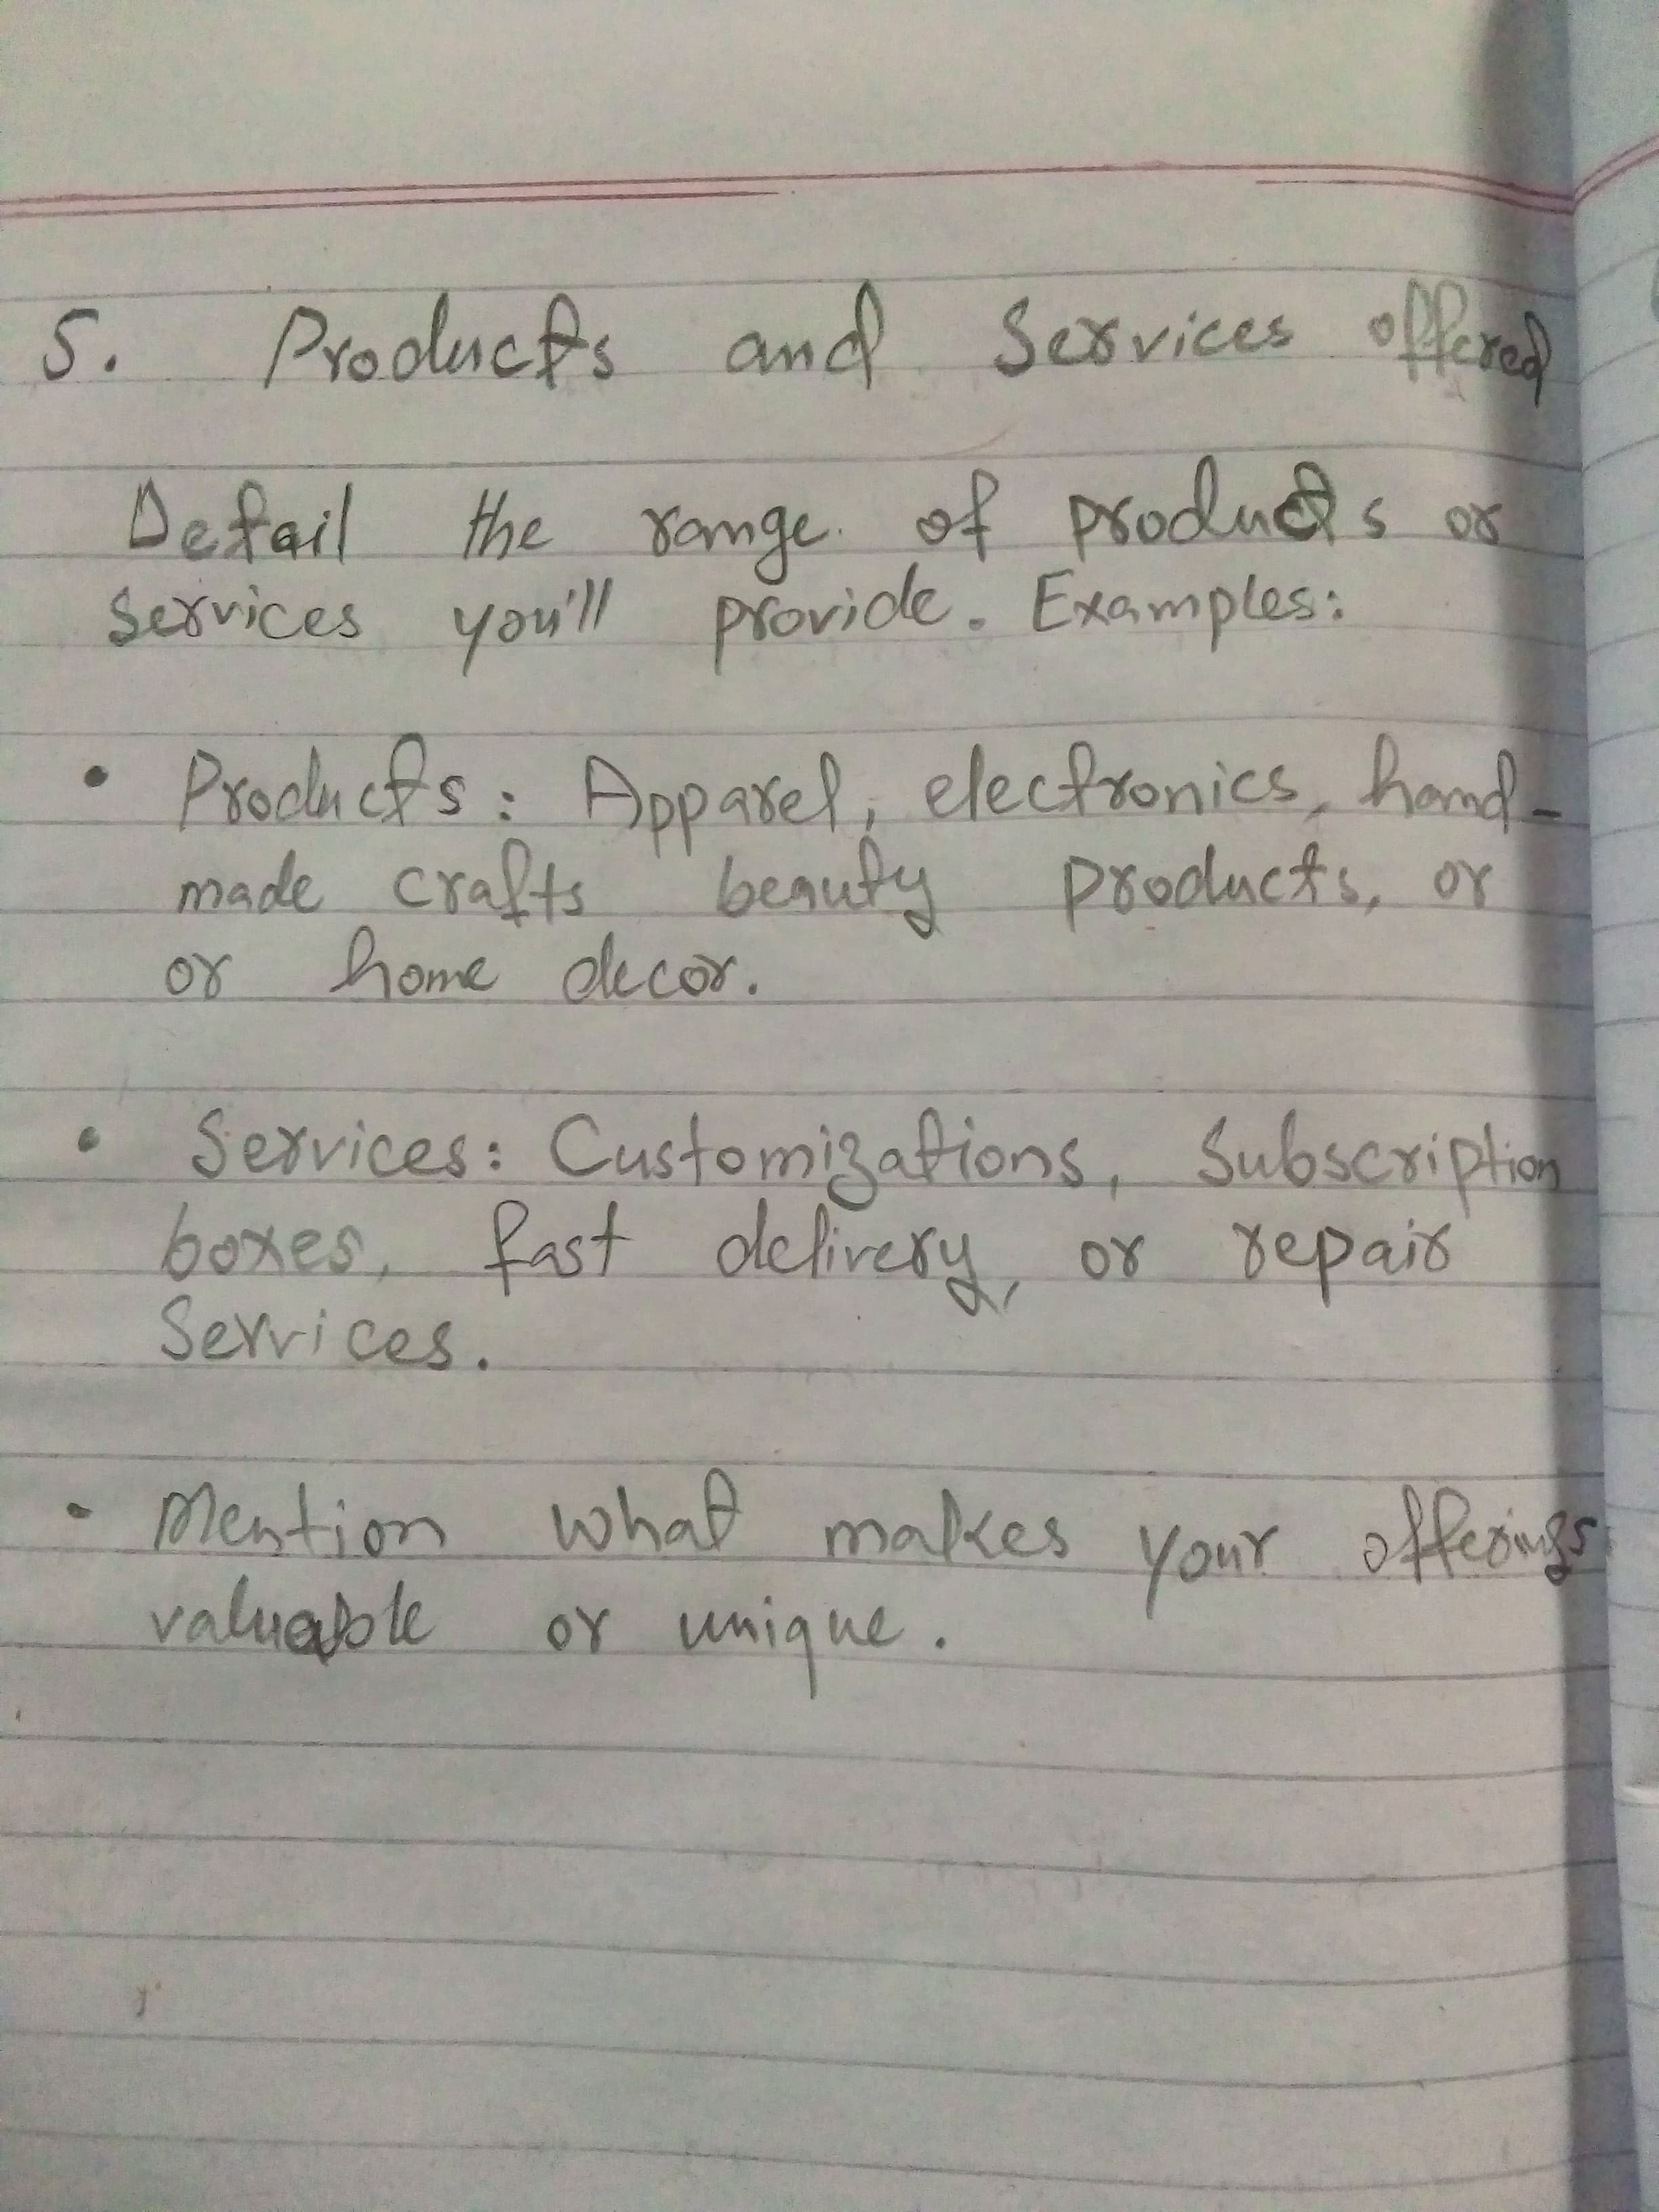 5. Products and Services offered
Detail the range of products or
services you'll provide. Examples:
• Products: Apparel, electronics, hand-
made crafts beauty products, or
or home decor.
• Services: Customizations, Subscription
boxes, fast delivery, or repair
Services.
• Mention what makes your offerings
valuable or unique.